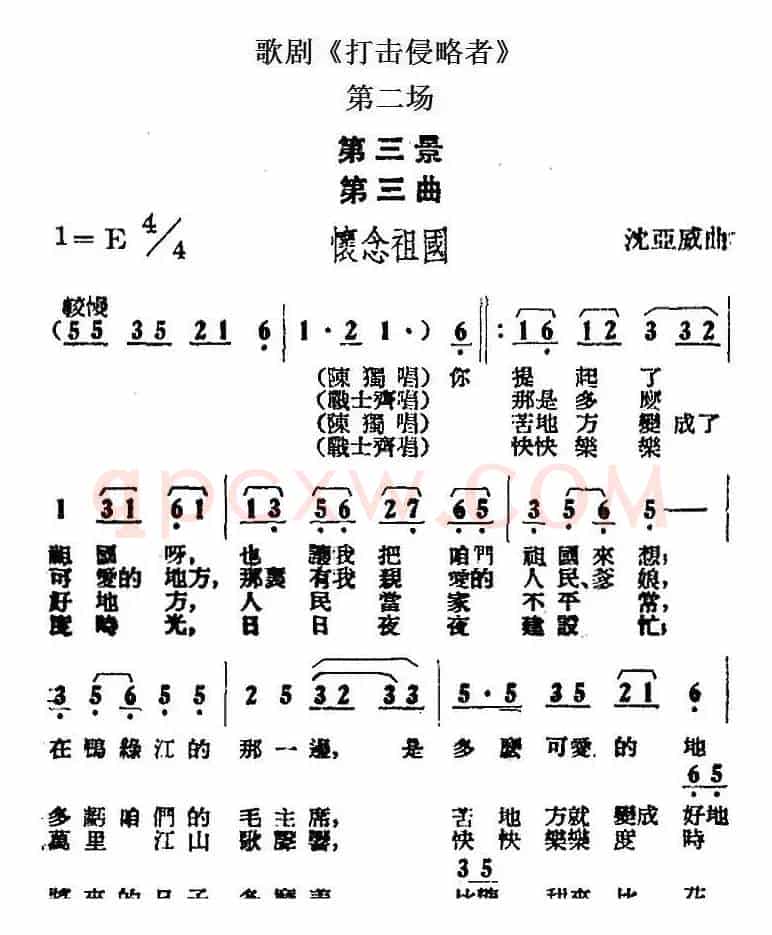 歌剧《打击侵略者》
第二场
第三景
第三曲
1=E 4/4 懷念祖國 沈亞威曲
較慢
(55 35 21 6 | 1·2 1·) 6 ‖: 16 12 3 332
(陳獨唱)你 提 起 了
(戰士齊唱) 那是多麼
(陳獨唱) 苦地方變成了
(戰士齊唱) 快快樂樂
qpcxw.com
1 31 61 | 13 56 27 65 | 3 56 5 —
祖國呀,也讓我把咱們祖國來想;
可愛的地方,那裏有我親愛的人民、爹娘,
好地方,人民當家不平常,
度時光,日日夜夜建設忙;
3 5 6 5 5 | 2 5 32 33 | 5·5 35 21 6
在鴨綠江的那一邊,是多麼可愛的地
6 5
多虧咱們的毛主席,苦地方就變成好地
萬里江山歌聲響,快快樂樂度時
3 5
將來的日子多麼美 比 甜來比花